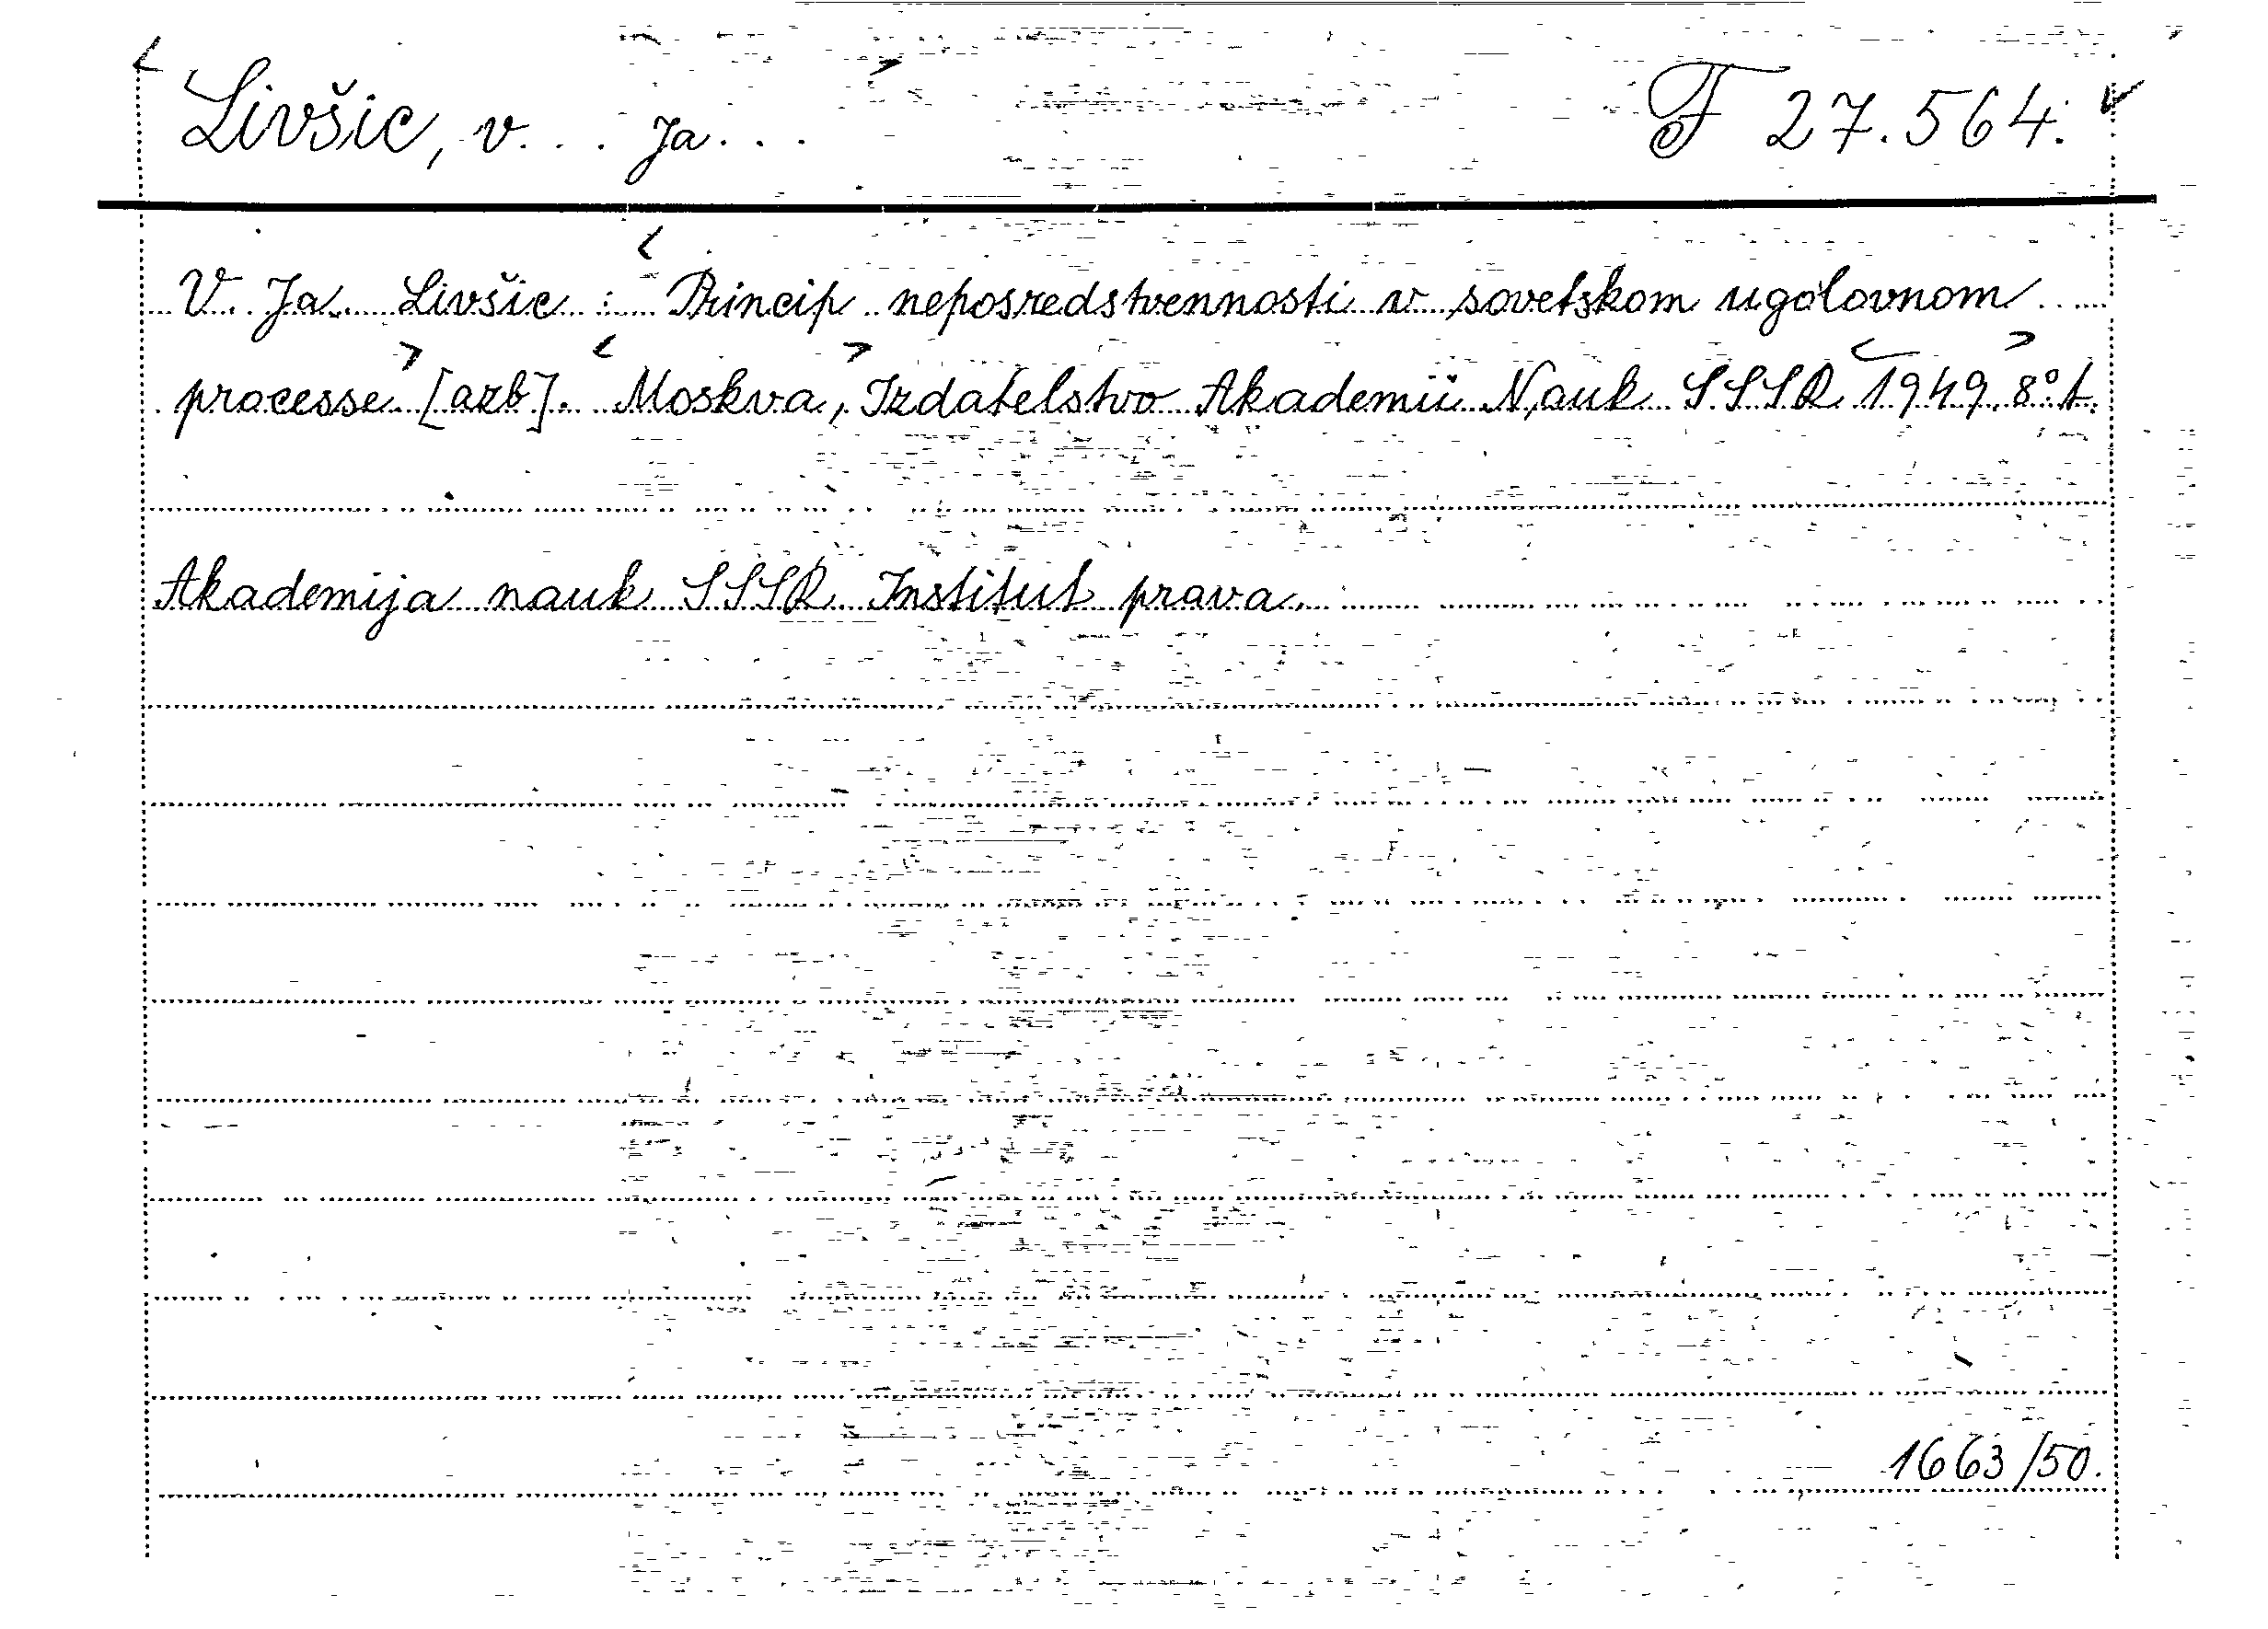 Livšic, V... Ja... F 27.564.
V. Ja. Livšic : Princip neposredstvennosti v sovetskom ugolovnom
processe [azb]. Moskva, Izdatelstvo Akademii Nauk SSSR 1949. 8° A.
Akademija nauk SSSR Institut prava.
1663/50.